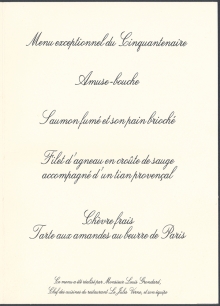 Menu exceptionnel du Cinquantenaire
Amuse-bouche
Saumon fumé et son pain brioché
Filet d'agneau en croûte de sauge
accompagné d'un tian provençal
Chèvre frais
Tarte aux amandes au beurre de Paris
Ce menu a été réalisé par Monsieur Louis
Chef des cuisines du restaurant Le Jules Verne, et son équipe